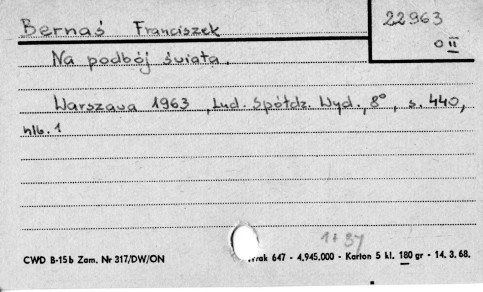 Bernaś Franciszek
22963
O II
Na podbój świata.
Warszawa 1963, Lud. Spółdz. Wyd., 8°, s. 440,
nlb. 1
1+37
CWD B-15b Zam. Nr 317/DW/ON
647 - 4.945.000 - Karton 5 kl. 180 gr - 14. 3. 68.